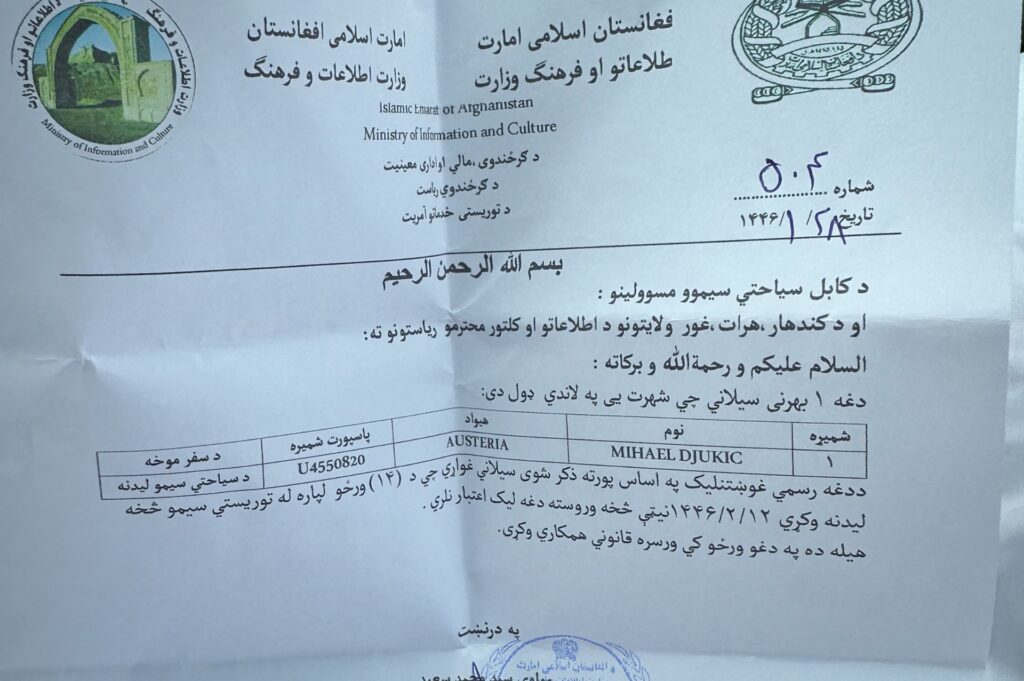 د اطلاعاتو او فرهنگ وزارت
وزارت اطلاعات و فرهنگ
Ministry of Information and Culture
امارت اسلامی افغانستان
وزارت اطلاعات و فرهنگ
فغانستان اسلامی امارت
طلاعاتو او فرهنگ وزارت
Islamic Emarat of Afghanistan
Ministry of Information and Culture
د ګرځندوی ،مالي اواداری معینیت
د ګرځندوي ریاست
د توریستی خدماتو آمریت
شماره ۵۰۴
تاریخ ۲۸/ ۱/۱۴۴۶
بسم الله الرحمن الرحیم
د کابل سیاحتي سیموو مسوولینو :
او د کندهار ،هرات ،غور ولایتونو د اطلاعاتو او کلتور محترمو ریاستونو ته:
السلام علیکم و رحمةالله و برکاته :
دغه ۱ بهرنی سیلاني چي شهرت یی په لاندي ډول دی:
شمیره نوم هیواد پاسپورت شمیره د سفر موخه
۱ MIHAEL DJUKIC AUSTERIA U4550820 د سیاحتي سیمو لیدنه
ددغه رسمي غوښتنلیک په اساس پورته ذکر شوی سیلاني غواري جي د (۱۴) ورځو لپاره له توریستي سیمو څخه
لیدنه وکړي ۱۴۴۶/۲/۱۲نیټې څخه وروسته دغه لیک اعتبار نلري .
هیله ده په دغو ورځو کي ورسره قانوني همکاري وکړی.
په درنښت
د افغانستان اسلامی امارت